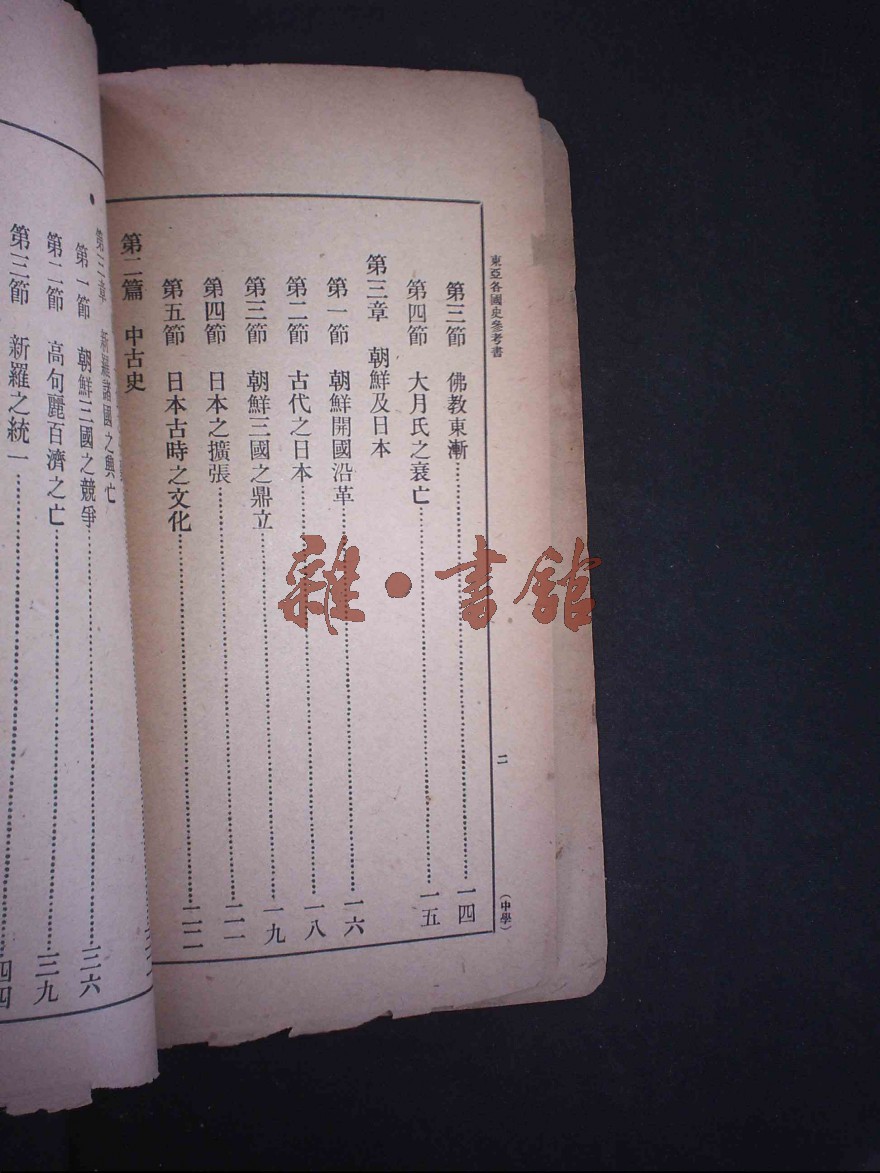 東亞各國史參考書
二
(中學)
第三節 佛教東漸 一四
第四節 大月氏之衰亡 一五
第三章 朝鮮及日本
第一節 朝鮮開國沿革 一六
第二節 古代之日本 一八
第三節 朝鮮三國之鼎立 一九
第四節 日本之擴張 二一
第五節 日本古時之文化 二二
第二篇 中古史
新羅諸國之興亡
第一節 朝鮮三國之競爭 三六
第二節 高句麗百濟之亡 三九
第三節 新羅之統一 四四
雜·書館